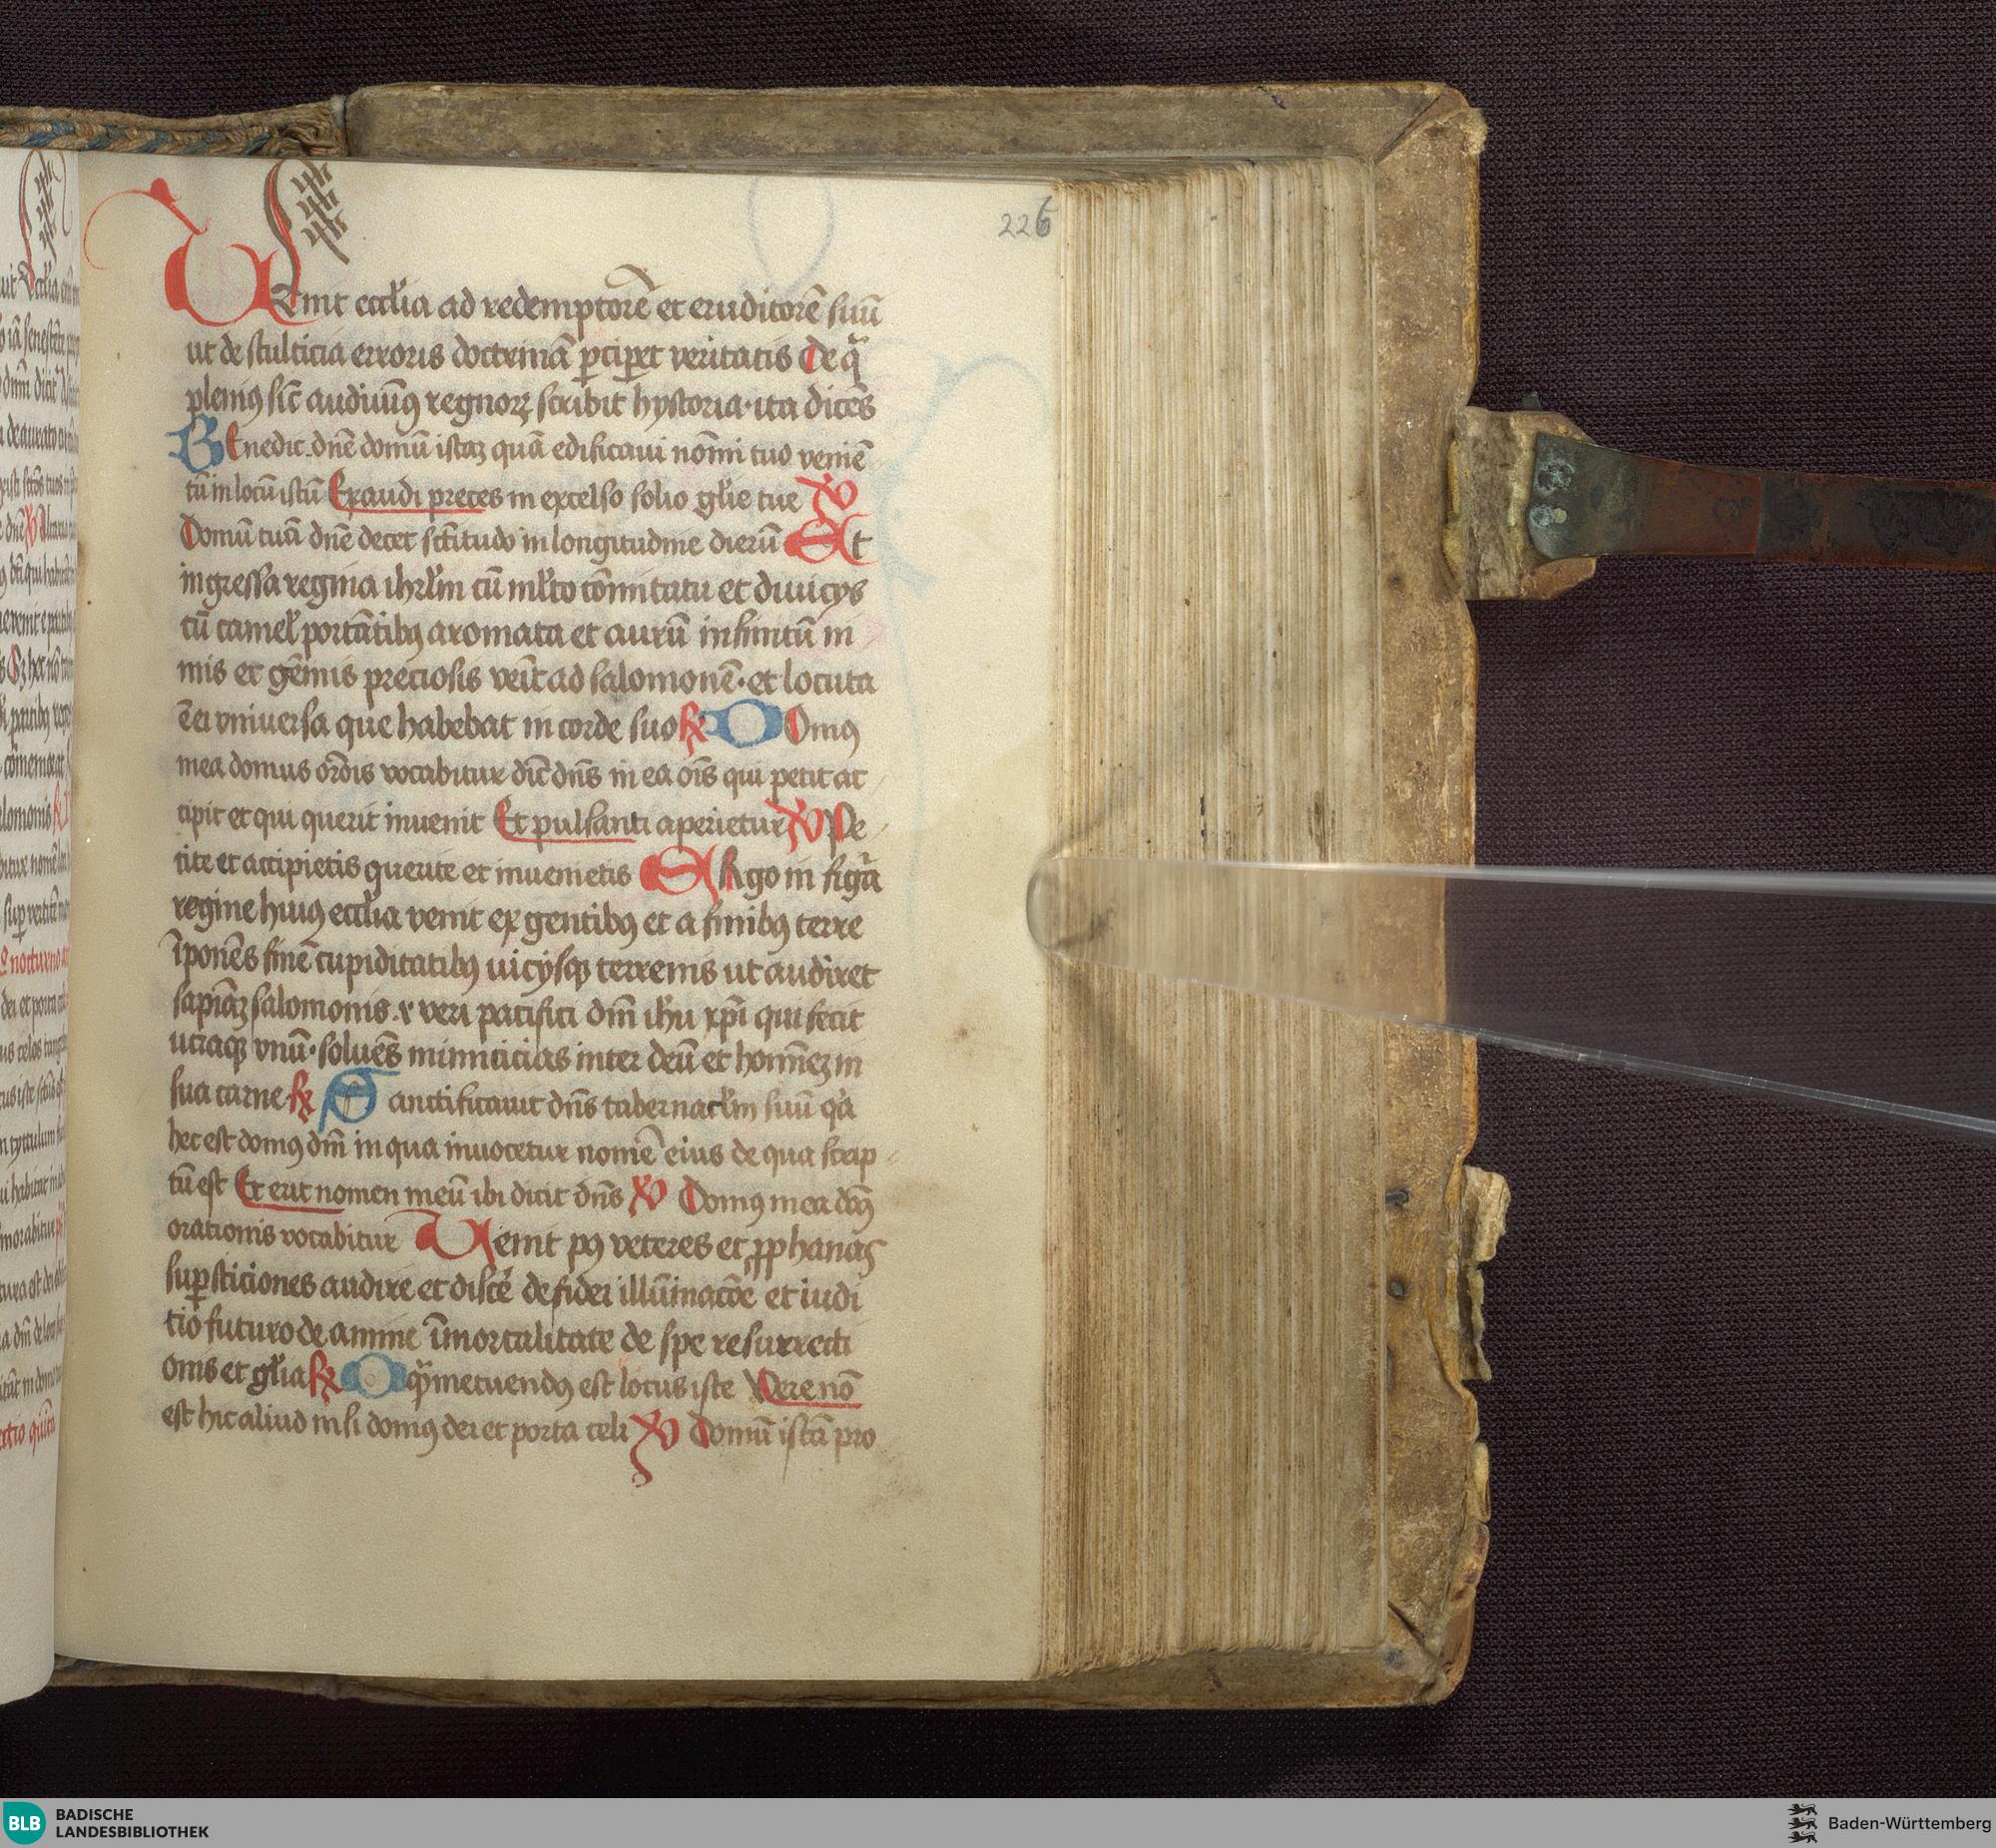 226
Uenit eccl'ia ad redemptorē et eruditorē suū
ut de stulticia erroris doctrinā ꝑcipet veritatis De qͣ
plenius sic̄ audiuimꝰ regnoꝝ scribit hystoria · ita dicēs
BEnedic dn̄e domū istaꝫ quā edificaui nomī tuo veniē
tū in locū istū Exaudi preces in excelso solio gl'ie tue ℣
Domū tuā dn̄e decet sc̄titudo in longitudine dierū Et
ingressa regina ihrl'm cū ml'to cōmitatu et diuicijs
cū camel' portātibꝰ aromata et aurū infinitū ni
mis et gēmis preciosis venīt ad salomonē · et locuta
ē ei vniuersa que habebat in corde suo ℟ DOmꝰ
mea domus orōis vocabitur dic̄ dn̄s in ea oīs qui petit ac
cipit et qui querit inuenit Et pulsanti aperietur ℣ Pe
tite et accipietis querite et inuenietis Ergo in figͣa
regine huiꝰ eccl'ia venit ex gentibꝰ et a finibꝰ terre
īponēs finē cupiditatibꝰ uicijsqꝫ terrenis ut audiret
sapīaꝫ salomonis · v veri pacifici dn̄i ih'u xp̄i qui fecit
utraqꝫ vnū · soluēs inimicicias inter deū et homīeꝫ in
sua carne ℟ Sanctificauit dn̄s tabernacl'm suū qͥa
hec est domꝰ dn̄i in qua inuocetur nomē eius de qua scrip
tū est Et erit nomen meū ibi dicit dn̄s ℣ Domꝰ mea domꝰ
orationis vocabitur Uenit pꝰ veteres et ꝓphanas
suꝑsticiones audire et disce' de fidei illūinacōe et iudi
tio futuro de anime īmortalitate de spe resurrecti
onis et gl'ia ℟ O qͣ metuendꝰ est locus iste Vere nō
est hic aliud nisi domꝰ dei et porta celi ℣ Domū istā pro
BLB BADISCHE
LANDESBIBLIOTHEK
Baden-Württemberg